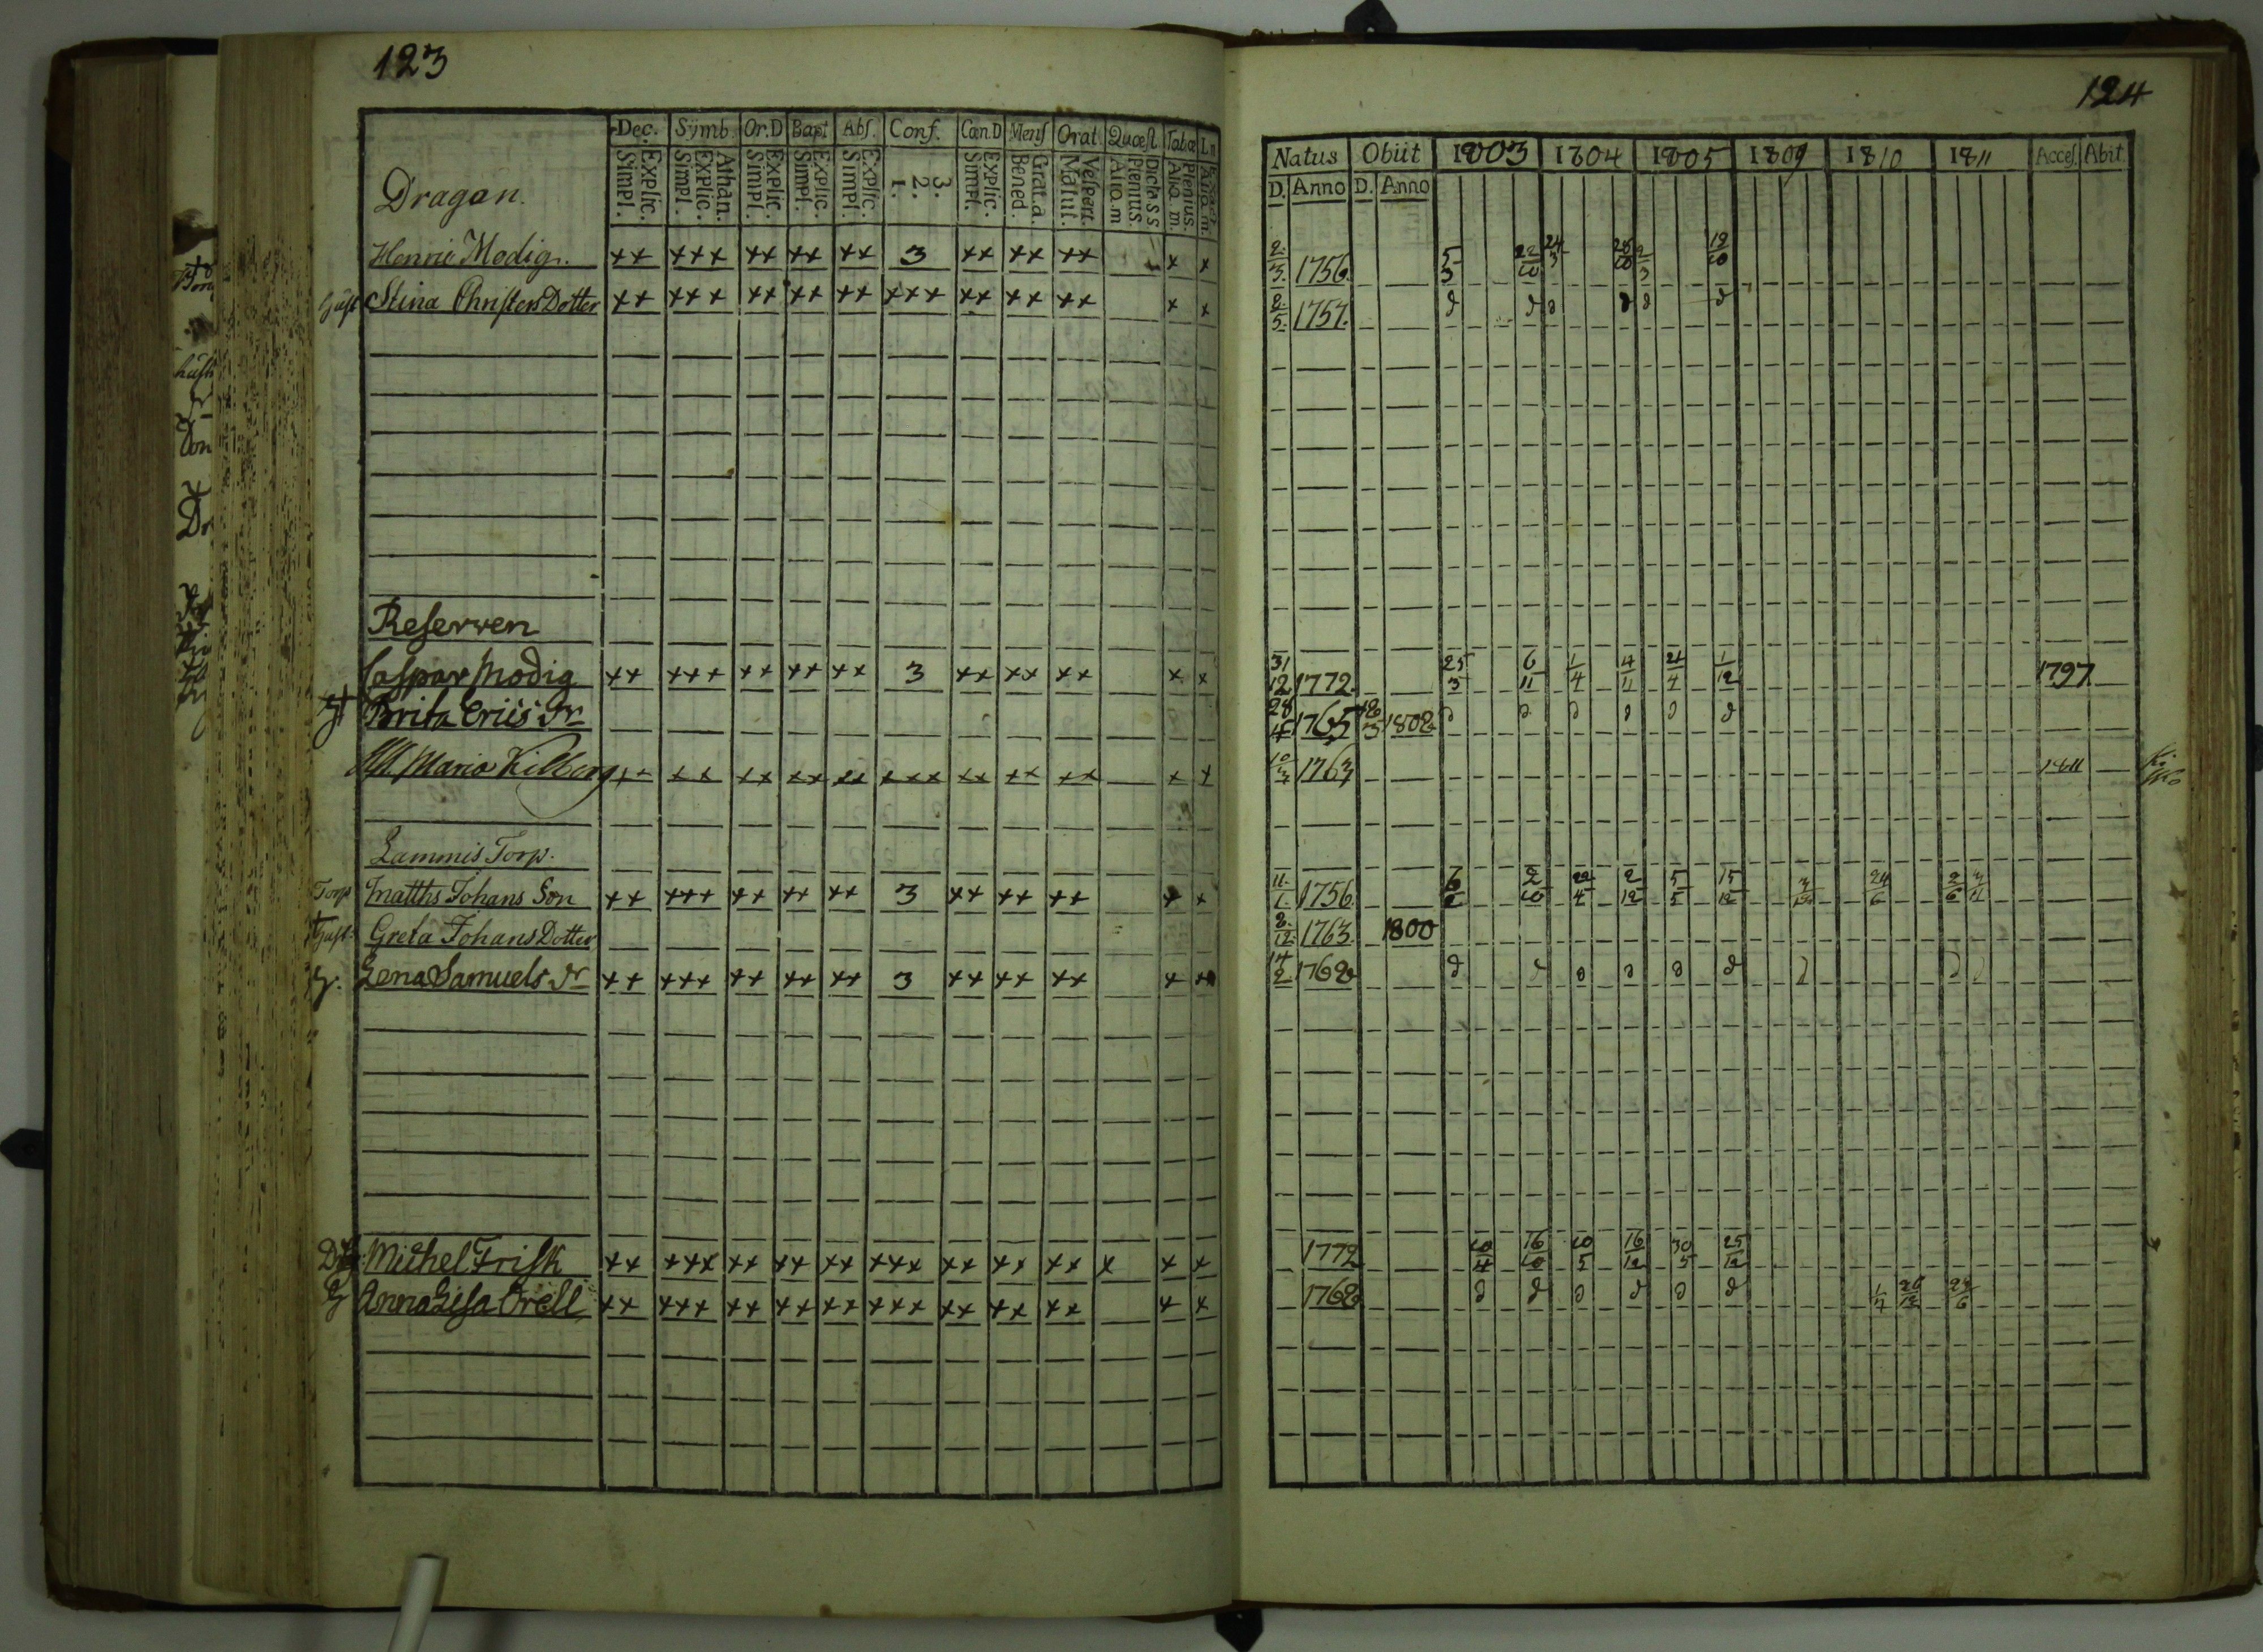 123
Dec. Symb. Or.D Bapt Abs. Conf. Cœn.D Mens Orat Quæst Tabæ
Explic. Simpl. Athan. Explic. Simpl. Explic. Simpl. Explic. Simpl. Explic. Simpl. 3. 2. 1. Explic. Simpl. Grat.a. Bened. Vespert. Matut. Dicta S S Plenius. Aliq. m Plenius. Aliq. m.
Dragon.
Henric Modig. ++ +++ ++ ++ ++ 3 ++ ++ ++ + +
Hust Stina Christers Dotter ++ +++ ++ ++ ++ +++ ++ ++ ++ + +
Reserven
Caspar Modig ++ +++ ++ ++ ++ 3 ++ ++ ++ + +
Brita Eriis Dr
Maria Kilberg ++ ++ ++ ++ ++ +++ ++ ++ ++ + +
Lammis Torp.
Torp Matths Johans Son ++ +++ ++ ++ ++ 3 ++ ++ ++ + +
Hust. Greta Johans Dotter
H. Lena Samuels Dr ++ +++ ++ ++ ++ 3 ++ ++ ++ + ++
Michel Frisk ++ +++ ++ ++ ++ +++ ++ ++ ++ + + +
H Anna Lisa Orell ++ +++ ++ ++ ++ +++ ++ ++ ++ + +
124
Natus Obiit 1803 1804 1805 1809 1810 1811 Acces. Abit.
D. Anno D. Anno
2/3. 1756. 5/3 22/10 24/3 28/10 2/3 19/10
8/5. 1757. d d d d d d
31/12 1772. 25/3 6/11 1/4 4/11 21/4 1/12 1797
28/4 1765 1802 d d d d d d
1763 1811
11./1. 1756. 2/10 22/4 2/12 5/5 15/12 24/6 2/6
8./12. 1763. 1800
14/2 1768 d d d d d d d d d
1772 10/4 16/10 10/5 16/12 30/5 25/12
1768 d d d d d d 1/7 26/12 24/6